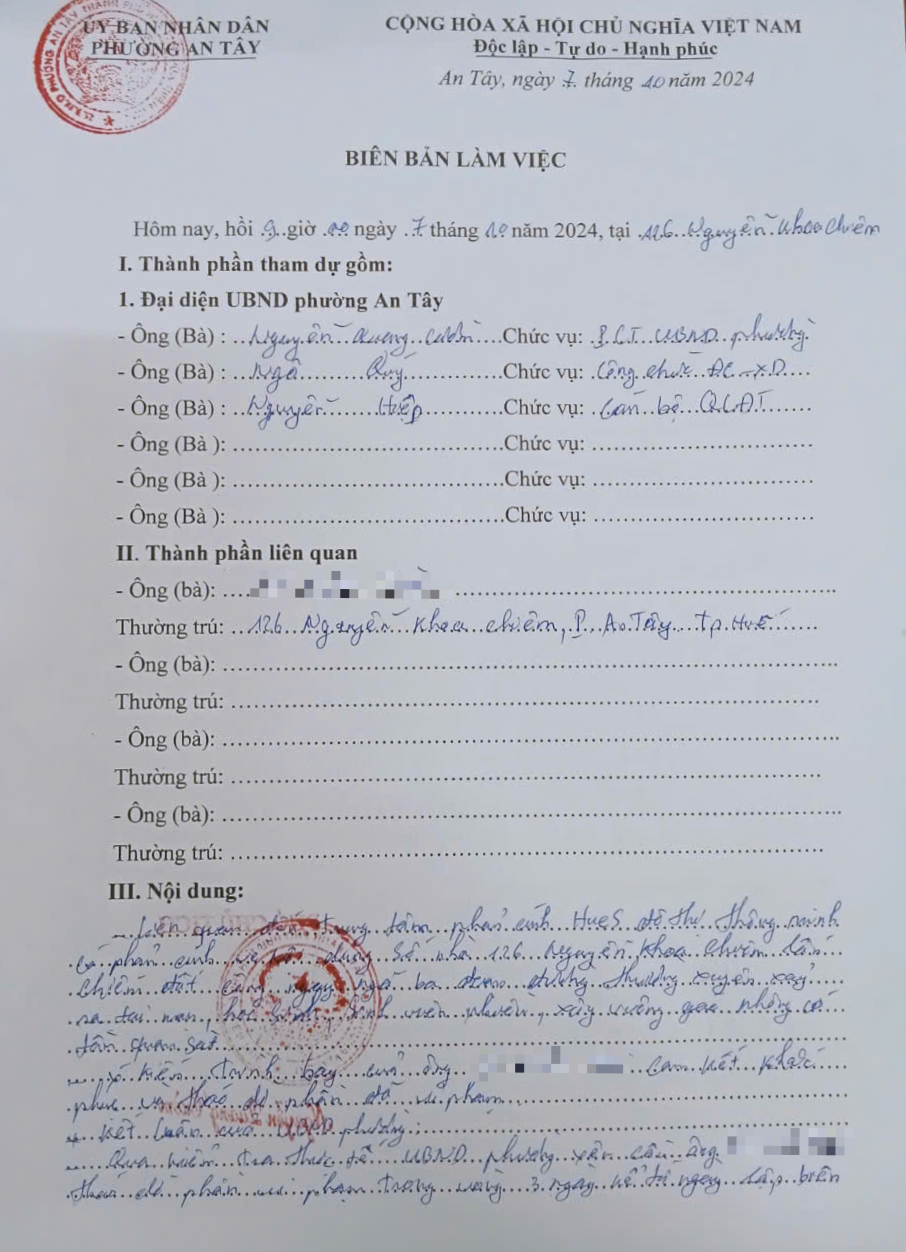 ỦY BAN NHÂN DÂN
PHƯỜNG AN TÂY
CỘNG HÒA XÃ HỘI CHỦ NGHĨA VIỆT NAM
Độc lập - Tự do - Hạnh phúc
An Tây, ngày 7 tháng 10 năm 2024
BIÊN BẢN LÀM VIỆC
Hôm nay, hồi 9 giờ 00 ngày 7 tháng 10 năm 2024, tại 126 Nguyễn Khoa Chiêm
I. Thành phần tham dự gồm:
1. Đại diện UBND phường An Tây
- Ông (Bà) : Nguyễn Quang Chức vụ: P.C.T UBND phường
- Ông (Bà) : Ngô Quý Chức vụ: Công chức ĐC-XD
- Ông (Bà) : Nguyễn Hiệp Chức vụ: Cán bộ QLĐT
- Ông (Bà ): Chức vụ:
- Ông (Bà ): Chức vụ:
- Ông (Bà ): Chức vụ:
II. Thành phần liên quan
- Ông (bà):
Thường trú: 126 Nguyễn Khoa Chiêm, P. An Tây tp Huế
- Ông (bà):
Thường trú:
- Ông (bà):
Thường trú:
- Ông (bà):
Thường trú:
III. Nội dung:
Liên quan đến trung tâm phản ánh HueS đô thị thông minh
có phản ánh về nội dung số nhà 126 Nguyễn Khoa Chiêm lấn
chiếm đất công ngay ngã ba đường thường xuyên xảy
ra tai nạn, học sinh, sinh viên nhiều, xây vướng góc không có
tầm quan sát
ý kiến trình bày của ông cam kết khắc
phục và tháo dỡ phần đã vi phạm
* Kết luận của UBND phường:
Qua kiểm tra thực tế UBND phường yêu cầu ông
tháo dỡ phần vi phạm trong vòng 3 ngày kể từ ngày lập biên